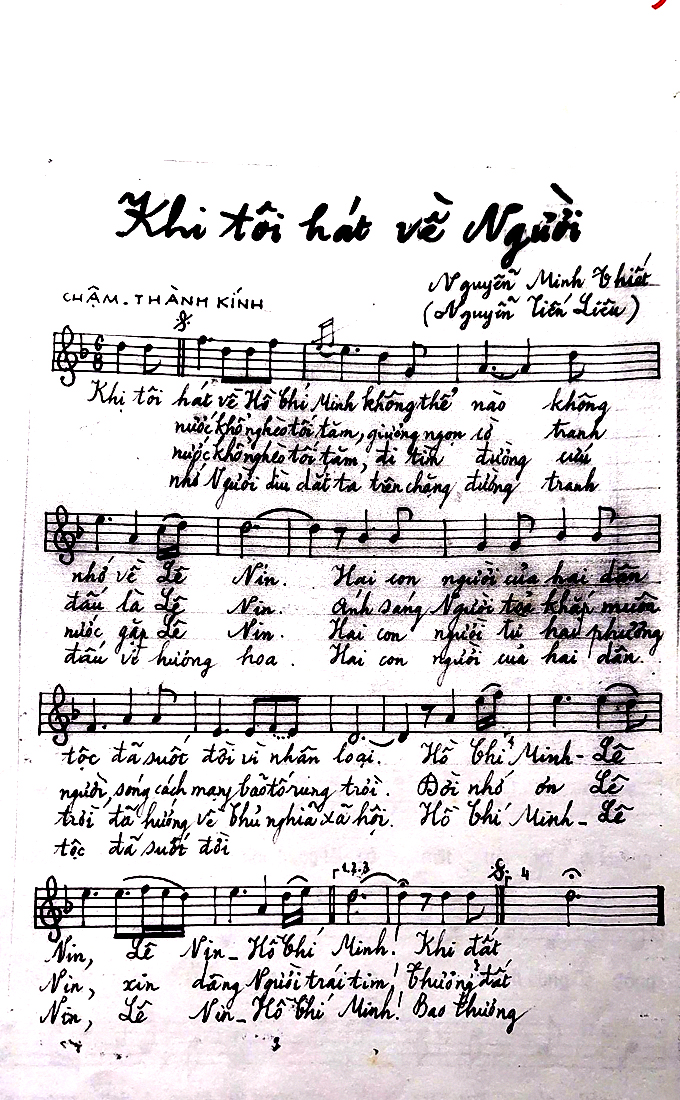 Khi tôi hát về Người
Nguyễn Minh Thiết
(Nguyễn Tiến Liêu)
CHẬM - THÀNH KÍNH
6
8
Khi tôi hát về Hồ Chí Minh không thể nào không
nước khổ nghèo tối tăm, giương ngọn cờ tranh
nước khổ nghèo tối tăm, đi tìm đường cứu
nhớ Người dìu dắt ta trên chặng đường tranh
nhớ về Lê Nin. Hai con người của hai dân
đấu là Lê Nin. Ánh sáng Người toả khắp muôn
nước gặp Lê Nin. Hai con người từ hai phương
đấu về hương hoa. Hai con người của hai dân.
tộc đã suốt đời vì nhân loại. Hồ Chí Minh - Lê
người, sóng cách mạng bão tố rung trời. Đời nhớ ơn Lê
trời đã hướng về Chủ nghĩa xã hội. Hồ Chí Minh - Lê
tộc đã suốt đời
1.2.3
4
Nin, Lê Nin - Hồ Chí Minh! Khi đất
Nin, xin dâng Người trái tim! Thương đất
Nin, Lê Nin - Hồ Chí Minh! Bao thương